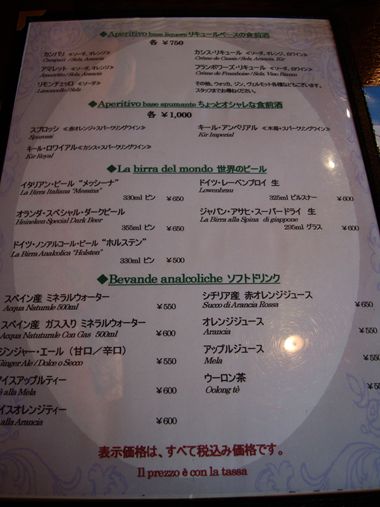 ◆Aperitivo base liquore リキュールベースの食前酒
各 ¥750
カンパリ ≪ソーダ、オレンジ≫
カシス・リキュール ≪ソーダ、オレンジ、白ワイン≫
Campari / Soda, Arancia
Crème de Cassis / Soda, Arancia, Kir
アマレット ≪ソーダ、オレンジ≫
フランボワーズ・リキュール ≪ソーダ、白ワイン≫
Amaretto / Soda, Arancia
Crème de Framboise / Soda, Vino Bianco
リモンチェッロ ≪ソーダ≫
その他、ウォッカ、ジン、ヴェルモット各種などもございます。
Limoncello / Soda
スタッフまでお尋ねください。
◆Aperitivo base spumante ちょっとオシャレな食前酒
各 ¥1,000
スプロッシ ≪赤オレンジ・スパーリングワイン≫
キール・アンペリアル ≪木苺・スパーリングワイン≫
Kir Imperial
キール・ロワイアル≪カシス・スパークリングワイン≫
Kir Royal
◆La birra del mondo 世界のビール◆
イタリアン・ビール “メッシーナ”
ドイツ・レーベンブロイ 生
La Birra Italiana "Messina"
Lowenbrau
330ml ビン ¥650
325ml ピルスナー ¥600
オランダ・スペシャル・ダークビール
ジャパン・アサヒ・スーパードライ 生
Heineken Special Dark Beer
La Birra alla Spina di giappone
355ml ビン ¥650
295ml グラス ¥600
ドイツ・ノンアルコール・ビール “ホルステン”
La Birra Analcolica "Holsten"
330ml ビン ¥500
◆Bevande analcoliche ソフトドリンク◆
スペイン産 ミネラルウォーター
シチリア産 赤オレンジジュース
Acqua Naturale 500ml
¥550
Succo di Arancia Rossa
スペイン産 ガス入り ミネラルウォーター
オレンジジュース
Acqua Natuturale Con Gas 500ml
¥600
Arancia
ジンジャー・エール (甘口/辛口)
アップルジュース
Ginger Ale / Dolce o Secco
¥550
Mela
アイスアップルティー
ウーロン茶
alla Mela
¥600
Oolong tè
アイスオレンジティー
alla Arancia
¥600
表示価格は、すべて税込み価格です。
Il prezzo è con la tassa